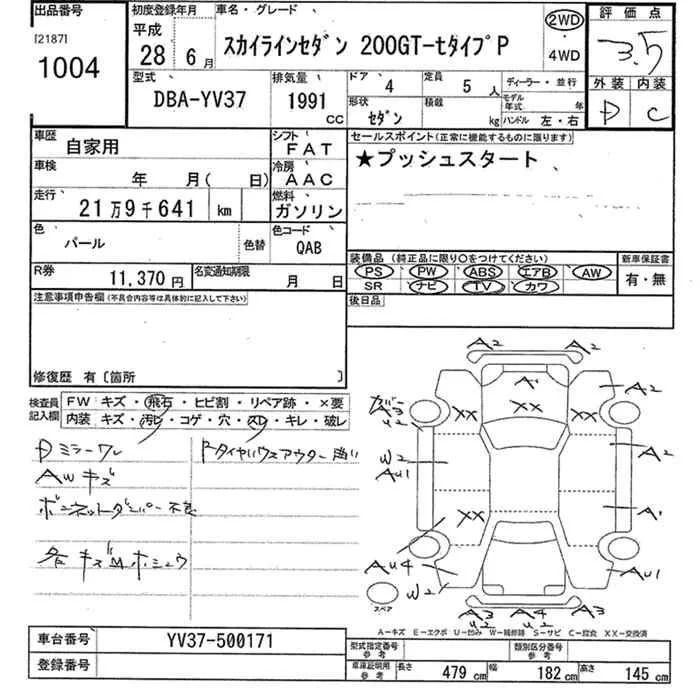 出品番号 初度登録年月 車名・グレード 評価点
[2187] 1004 平成 28 6月 スカイラインセダン 200GT-tタイプP 2WD・4WD 3.5
型式 排気量 ドア 4 定員 5人 ディーラー・並行 外装 内装
DBA-YV37 1991 CC 形状 セダン 積載 kg モデル年式 年 ハンドル 左・右 D C
車歴 自家用 シフト FAT セールスポイント(正常に機能するものに限ります)
車検 年 月( 日) 冷房 AAC ★プッシュスタート
走行 21万9千641 km 燃料 ガソリン
色 パール 色替 色コード QAB
装備品 (純正品に限り○をつけてください) 新車保証書
R券 11,370円 名変通知期限 月 日 PS PW ABS エアB AW 有・無
SR ナビ TV カワ
注意事項申告欄(不具合内容等は具体的に記入して下さい) 後日品
修復歴 有〔箇所 〕
検査員記入欄 FW キズ・飛石・ヒビ割・リペア跡・×要
内装 キズ・汚レ・コゲ・穴・スレ・キレ・破レ
Dミラーワレ
AWキズ
ボンネットダンパー不良
各キズUホシュウ
A2 A2
A1 A2
カバー A3 U2 XX XX XX
W2 AU1 A2
XX A1
AU4 W2 AU1
スペア A3 U2 A4 U2 A3
A-キズ E-エクボ U-凹ミ W-補修跡 S-サビ C-腐食 XX-交換済
車台番号 YV37-500171 型式指定番号 参考 類別区分番号 参考
登録番号 車庫証明用 参考 長さ 479 cm 幅 182 cm 高さ 145 cm